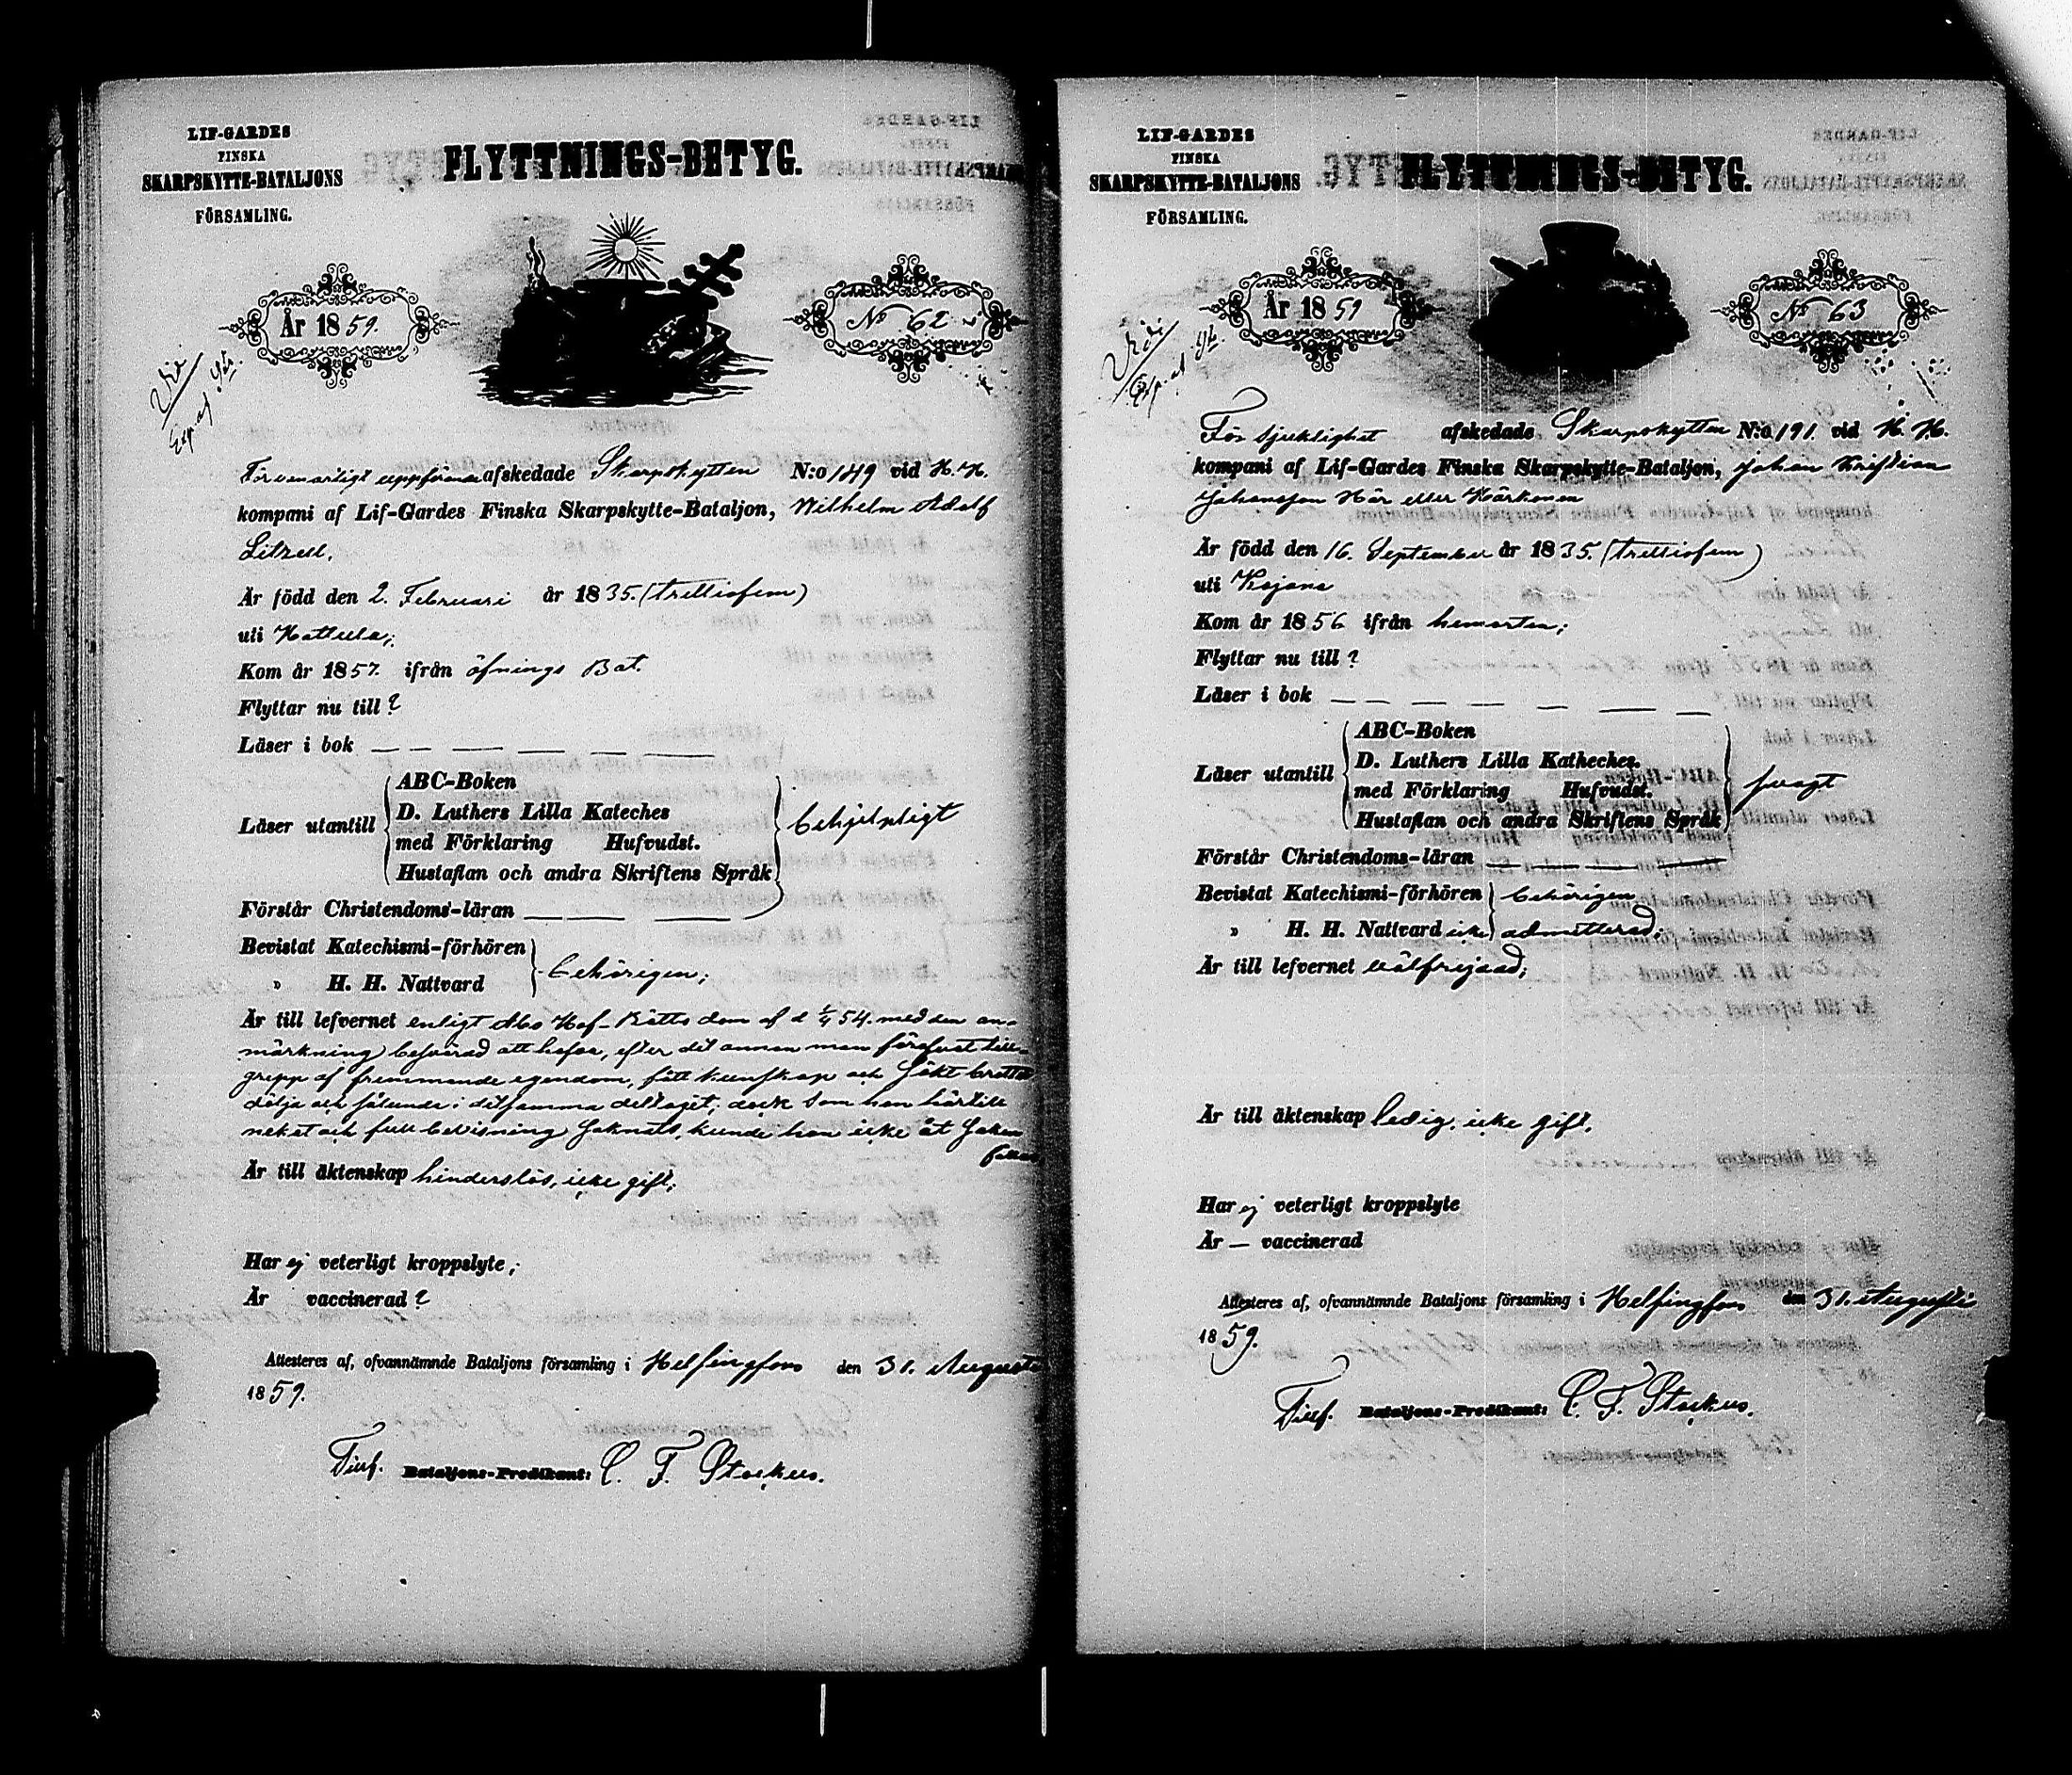 LIF-GARDES
FINSKA
SKARPSKYTTE-BATALJONS
FÖRSAMLING.
FLYTTNINGS-BETYG.
År 1859.
No 62
För vanartigt uppförande afskedade Skarpskytten N:o 149 vid H. K.
kompani af Lif-Gardes Finska Skarpskytte-Bataljon, Wilhelm Adolf
Litzell.
Är född den 2. Februari år 1835. (trettiofem)
uti Hattula;
Kom år 1857. ifrån öfnings Bat.
Flyttar nu till?
Läser i bok
Läser utantill
ABC-Boken
D. Luthers Lilla Kateches
med Förklaring Hufvudst.
Hustaflan och andra Skriftens Språk
behjelpligt
Förstår Christendoms-läran
Bevistat Katechismi-förhören
„ H. H. Nattvard
behörigen;
Är till lefvernet enligt Åbo Hof-Rätts dom af d 1/4 54. med den an-
märkning besvärad att hafva, efter det annan man föröfvat till-
grepp af fremmande egendom, fått kunskap och sökt brottet
dölja och sålunda i detsamma deltagit; dock som han härtill
nekat och full bevisning saknats, kunde han icke åt saken
fällas
Är till äktenskap hinderslös, icke gift;
Har ej veterligt kroppslyte;
Är vaccinerad?
Attesteras af, ofvannämnde Bataljons församling i Helsingfors den 31. Augusti
1859.
Bataljons-Predikant: C. F. Stockus.
LIF-GARDES
FINSKA
SKARPSKYTTE-BATALJONS
FÖRSAMLING.
FLYTTNINGS-BETYG.
År 1859
No 63
För sjuklighet afskedade Skarpskytten N:o 191. vid H. K.
kompani af Lif-Gardes Finska Skarpskytte-Bataljon, Johan Kristian
Johansson Här eller Härkonen
Är född den 16. September år 1835. (trettiofem)
uti Kajana
Kom år 1856 ifrån hemorten;
Flyttar nu till?
Läser i bok
Läser utantill
ABC-Boken
D. Luthers Lilla Katheches.
med Förklaring Hufvudst.
Hustaflan och andra Skriftens Språk
svagt
Förstår Christendoms-läran
Bevistat Katechismi-förhören behörigen
„ H. H. Nattvard icke admitterad;
Är till lefvernet välfrejdad;
Är till äktenskap ledig, icke gift.
Har ej veterligt kroppslyte
Är — vaccinerad
Attesteres af, ofvannämnde Bataljons församling i Helsingfors den 31. Augusti
1859.
Bataljons-Predikant: C. F. Stockus.